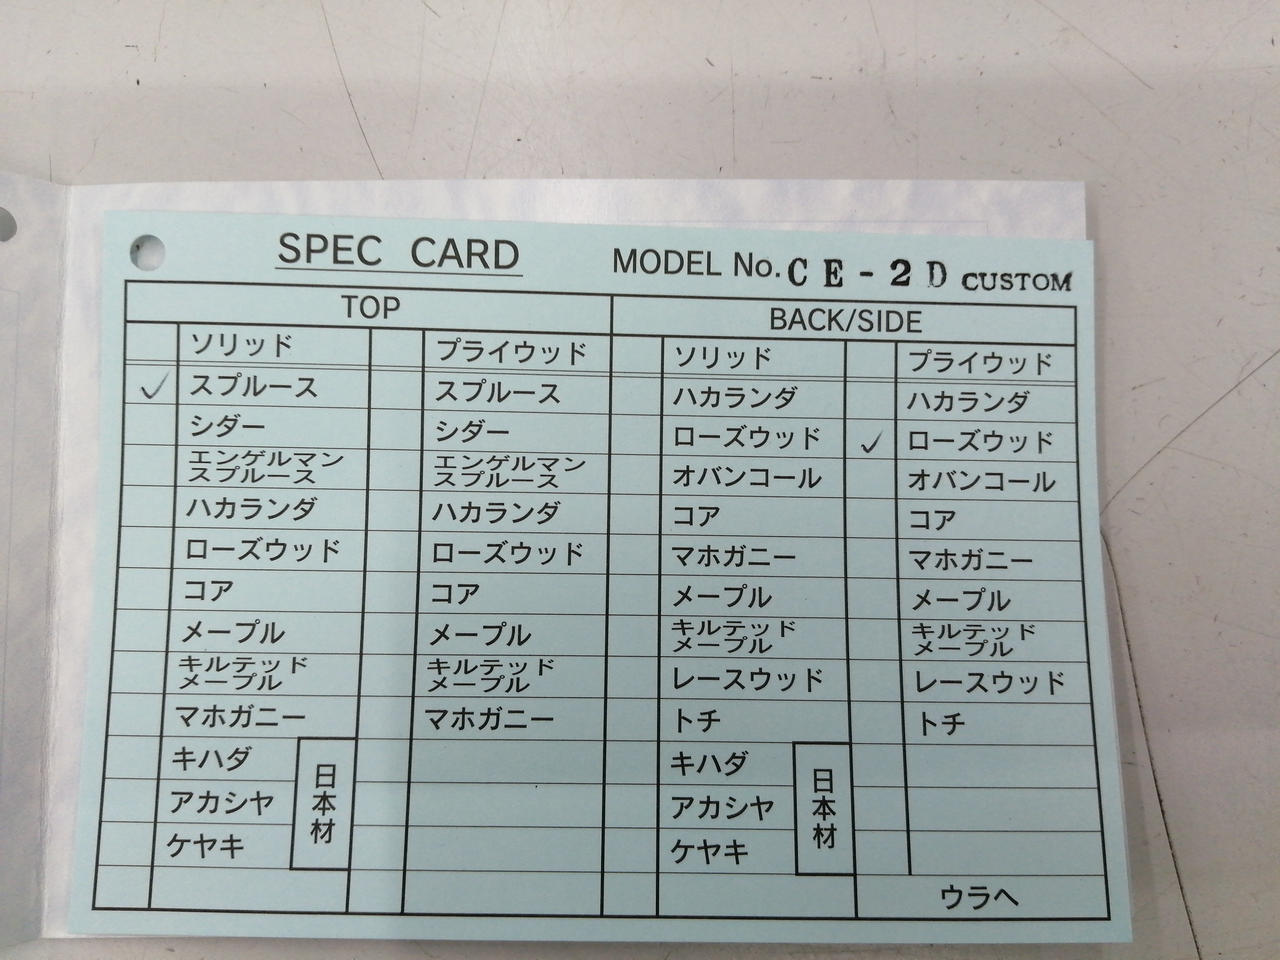 SPEC CARD MODEL No. CE-2D CUSTOM
TOP BACK/SIDE
ソリッド プライウッド ソリッド プライウッド
✓ スプルース スプルース ハカランダ ハカランダ
シダー シダー ローズウッド ✓ ローズウッド
エンゲルマン スプルース エンゲルマン スプルース オバンコール オバンコール
ハカランダ ハカランダ コア コア
ローズウッド ローズウッド マホガニー マホガニー
コア コア メープル メープル
メープル メープル キルテッド メープル キルテッド メープル
キルテッド メープル キルテッド メープル レースウッド レースウッド
マホガニー マホガニー トチ トチ
キハダ 日本材 キハダ 日本材
アカシヤ アカシヤ
ケヤキ ケヤキ
ウラへ